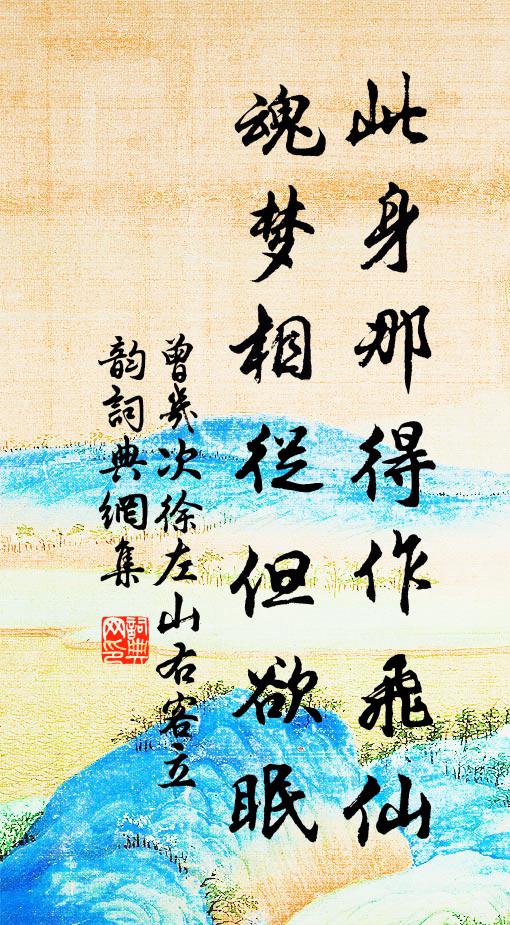 此身那得作飛仙
魂梦相從但欲眠
曾幾次徐左山右客立
韵詞典網集
詞典網印